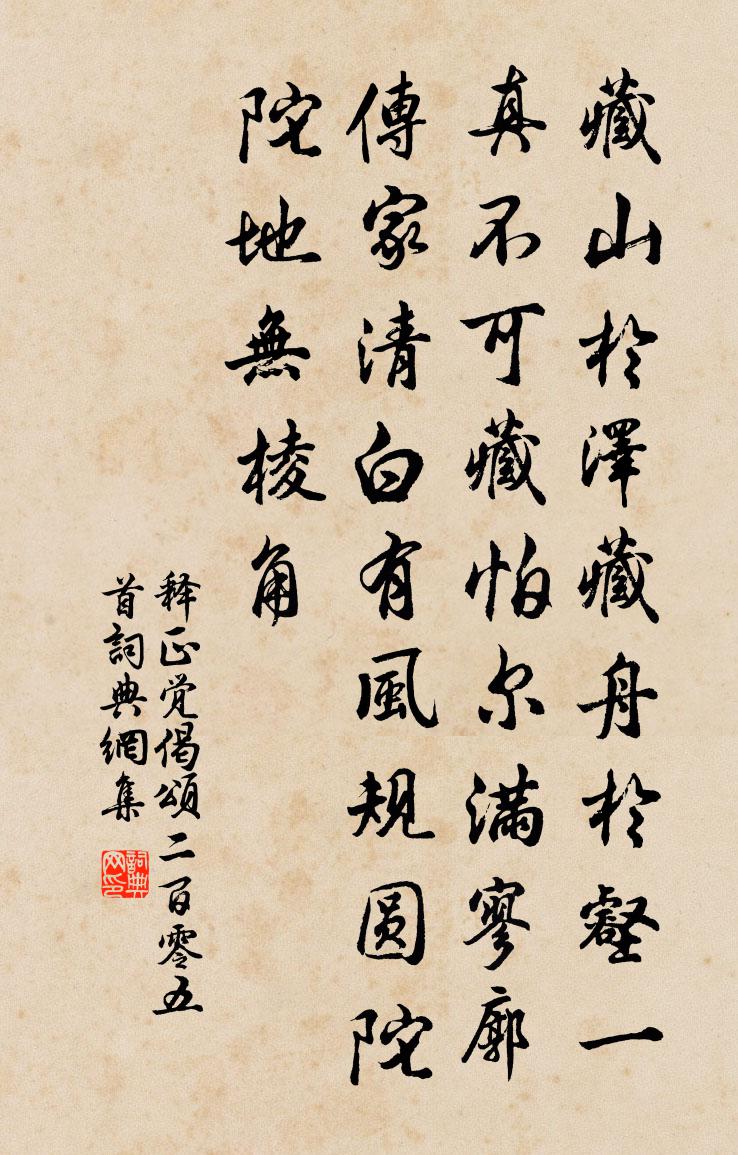 藏山於泽藏舟於壑一
真不可藏怕尔满寥廓
傳家清白有風規圆陀
陀地無棱角
释正觉偈頌二百零五
首詞典網集
詞典网印